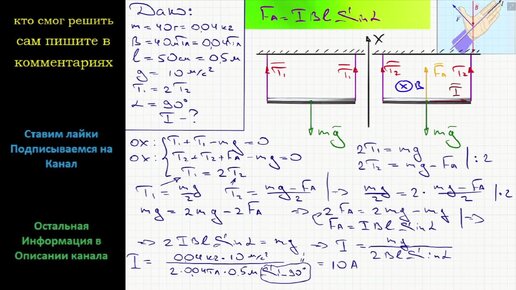 кто смог решить
сам пишите в
комментариях
Ставим лайки
Подписываемся на
Канал
Остальная
Информация в
Описании канала
Дано:
m = 40г = 0,04 кг
B = 40мТл = 0,04Тл
l = 50см = 0,5м
g = 10 м/с²
T₁ = 2T₂
α = 90°
I - ?
F_A = I B l Sin α
X
T₁ T₁ T₂ F_A T₂
B I
mg mg
OX: T₁ + T₁ - mg = 0
OX: T₂ + T₂ + F_A - mg = 0
T₁ = 2T₂
2T₁ = mg
2T₂ = mg - F_A |: 2
T₁ = mg/2 T₂ = (mg - F_A)/2 |⇒ mg/2 = 2 · (mg - F_A)/2 |· 2
mg = 2mg - 2F_A |⇒ 2F_A = 2mg - mg |⇒
F_A = I B l Sin α
⇒ 2 I B l Sin α = mg ⇒ I = mg/(2 B l Sin α)
I = (0,04кг · 10 м/с²)/(2 · 0,04Тл · 0,5м · Sin 90°) = 10 А